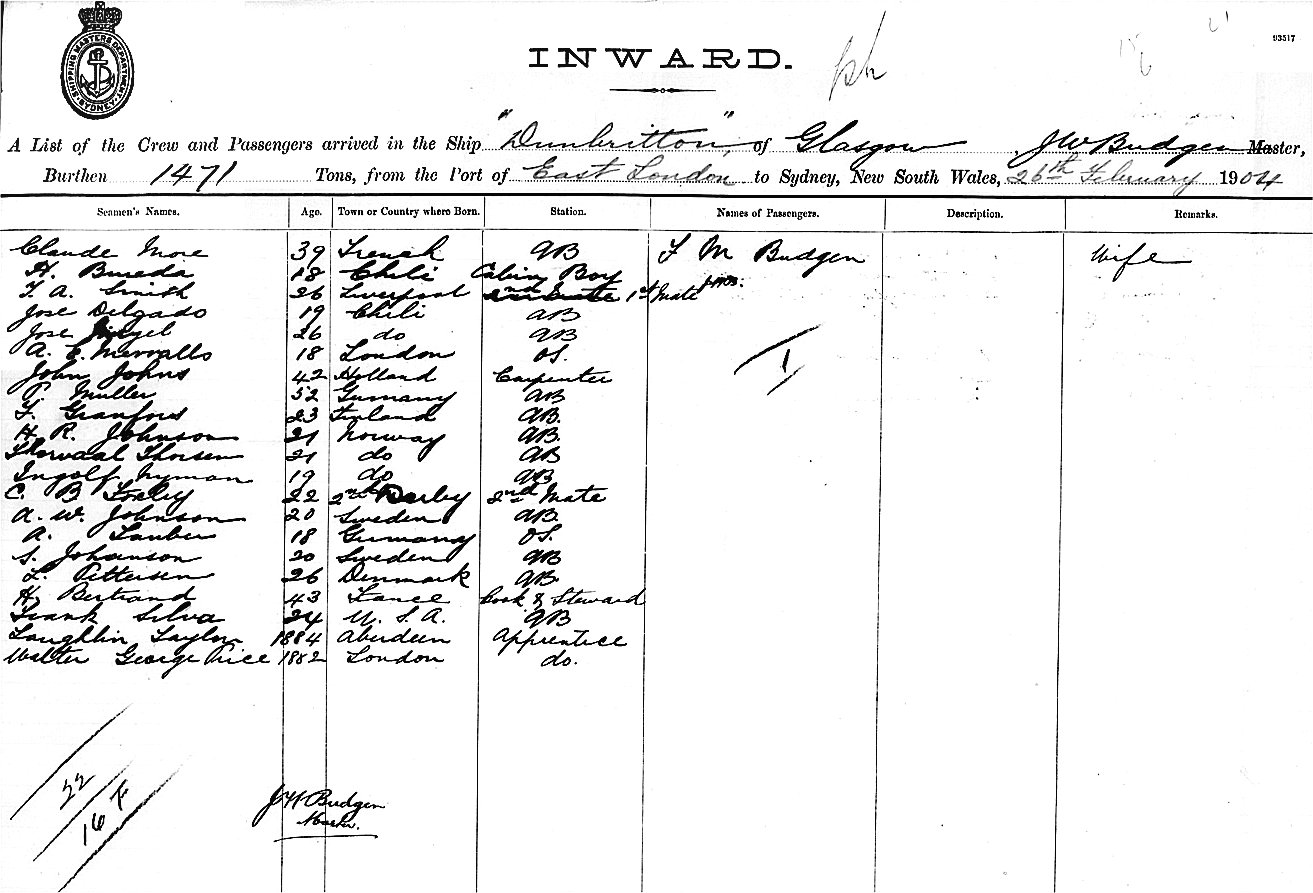 SHIPPING MASTERS DEPARTMENT SYDNEY
93517
INWARD.
A List of the Crew and Passengers arrived in the Ship "Dunbritton", of Glasgow, J W Budgen Master,
Burthen 1471 Tons, from the Port of East London to Sydney, New South Wales, 26th February 1904
Seamen's Names. Age. Town or Country where Born. Station. Names of Passengers. Description. Remarks.
Claude More 39 French AB F M Budgen Wife
H. Bureda 18 Chili Cabin Boy
F. A. Smith 26 Liverpool 2nd Mate 1st Mate
Jose Delgado 19 Chili AB
Jose 26 do AB
A. E. Merralls 18 London OS. 1
John Johns 42 Holland Carpenter
P. Muller 52 Germany AB
F. Granfors 23 Finland AB.
H. R. Johnson 21 Norway AB.
Thorvaal Thorsen 21 do AB
Ingolf Nyman 19 do AB
C. B Foxley 22 Derby 2nd Mate
A. W. Johnson 20 Sweden AB.
A. Lauber 18 Germany OS.
S. Johanson 20 Sweden AB
L. Pettersen 26 Denmark AB.
H. Bertrand 43 Fance Cook & Steward
Frank Silva 24 U. S. A. AB
Loughlin Taylor 1884 Aberdeen Apprentice
Walter George Price 1882 London do.
22
16 F
J W Budgen
Master.